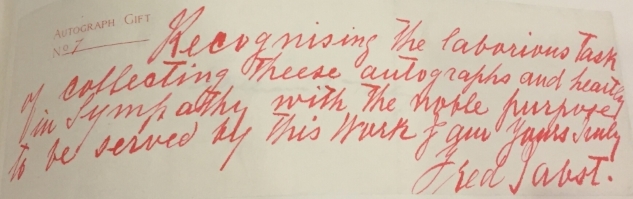 AUTOGRAPH GIFT
No 7
Recognising the laborious task
of collecting theese autographs and heartly
in sympathy with the noble purpose
to be served by this Work I am Yours truly
Fred Pabst.